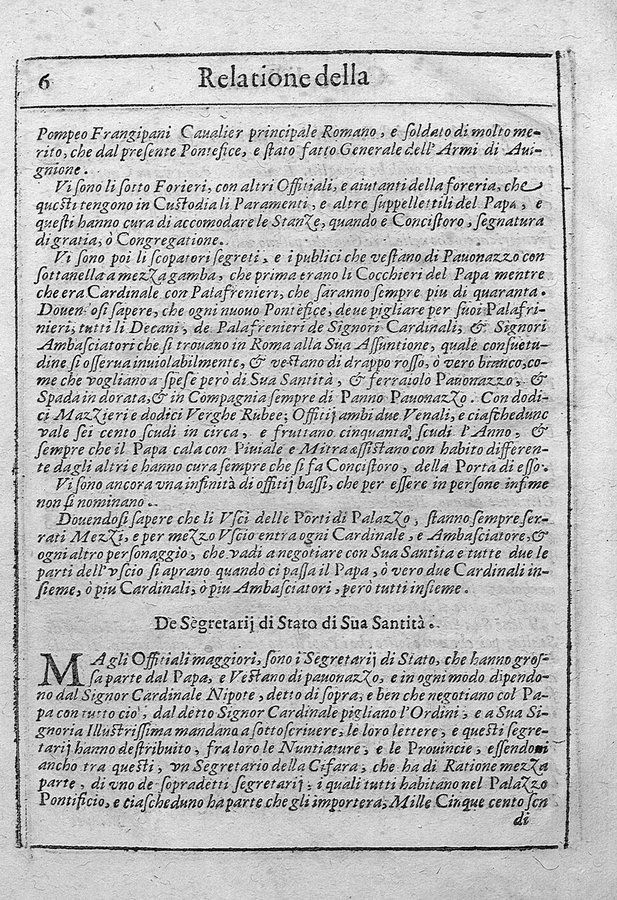 6 Relatione della
Pompeo Frangipani Caualier principale Romano, e soldato di molto me-
rito, che dal presente Pontefice, e stato fatto Generale dell'Armi di Aui-
gnione.
Vi sono li sotto Forieri, con altri Offitiali, e aiutanti della foreria, che
questi tengono in Custodia li Paramenti, e altre suppellettili del Papa, e
questi hanno cura di accomodare le Stanze, quando e Concistoro, segnatura
di gratia, ò Congregatione.
Vi sono poi li scopatori segreti, e i publici che vestano di Pauonazzo con
sottanella a mezza gamba, che prima erano li Cocchieri del Papa mentre
che era Cardinale con Palafrenieri, che saranno sempre piu di quaranta.
Douendosi sapere, che ogni nuouo Pontefice, deue pigliare per suoi Palafri-
nieri, tutti li Decani, de Palafrenieri de Signori Cardinali, & Signori
Ambasciatori che si trouano in Roma alla Sua Assuntione, quale consuetu-
dine si osserua inuiolabilmente, & vestano di drappo rosso, ò vero bianco, co-
me che vogliano a spese però di Sua Santità, & ferraiolo Pauonazzo, &
Spada in dorata, & in Compagnia sempre di Panno Pauonazzo. Con dodi-
ci Mazzieri e dodici Verghe Rubee; Offitij ambi due Venali, e ciaschedunc
vale sei cento scudi in circa, e fruttano cinquanta scudi l'Anno, &
sempre che il Papa cala con Piuiale e Mitra assistano con habito differen-
te dagli altri e hanno cura sempre che si fa Concistoro, della Porta di esso.
Vi sono ancora vna infinità di offitij bassi, che per essere in persone infime
non si nominano.
Douendosi sapere che li Vsci delle Porti di Palazzo, stanno sempre ser-
rati Mezzi, e per mezzo Vscio entra ogni Cardinale, e Ambasciatore, &
ogni altro personaggio, che vadi a negotiare con Sua Santita e tutte due le
parti dell'vscio si aprano quando ci passa il Papa, ò vero due Cardinali in-
sieme, ò piu Cardinali, ò piu Ambasciatori, però tutti insieme.
De Segretarij di Stato di Sua Santità.
MA gli Offitiali maggiori, sono i Segretarij di Stato, che hanno gros-
sa parte dal Papa, e Vestano di pauonazzo, e in ogni modo dipendo-
no dal Signor Cardinale Nipote, detto di sopra, e ben che negotiano col Pa-
pa con tutto ciò, dal detto Signor Cardinale pigliano l'Ordini, e a Sua Si-
gnoria Illustrissima mandano a sottoscriuere, le loro lettere, e questi segre-
tarij hanno destribuito, fra loro le Nuntiature, e le Prouincie, essendoui
ancho tra questi, vn Segretario della Cifara, che ha di Ratione mezza
parte, di vno de sopradetti segretarij, i quali tutti habitano nel Palazzo
Pontificio, e ciascheduno ha parte che gli importera, Mille Cinque cento scu
di